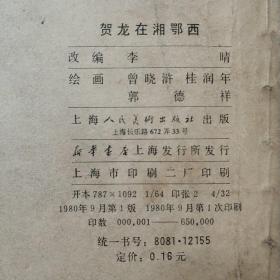 贺龙在湘鄂西
改编 李晴
绘画 曾晓浒 桂润年
郭德祥
上海人民美术出版社出版
上海长乐路672弄33号
新华书店上海发行所发行
上海市印刷二厂印刷
开本787×1092 1/64 印张2 4/32
1980年9月第1版 1980年9月第1次印刷
印数 000,001—650,000
统一书号：8081·12155
定价：0.16元